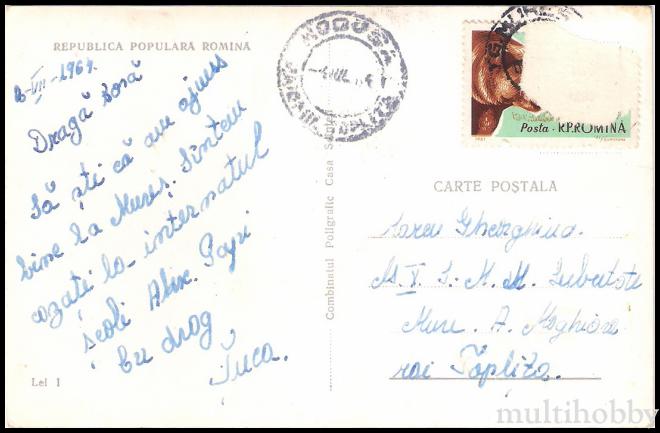 REPUBLICA POPULARA ROMINA
3-VII-1964.
Dragă soră
Să ști că am ajuns
bine la Mureș. Sîntem
cazați la internatul
școli Alex. Papi
Cu drag
Țuca.
Lei 1
Combinatul Poligrafic Casa
Posta · R.P.ROMINA
CARTE POȘTALA
Gheorghina.
Mun. A.
rai Toplița.
multihobby